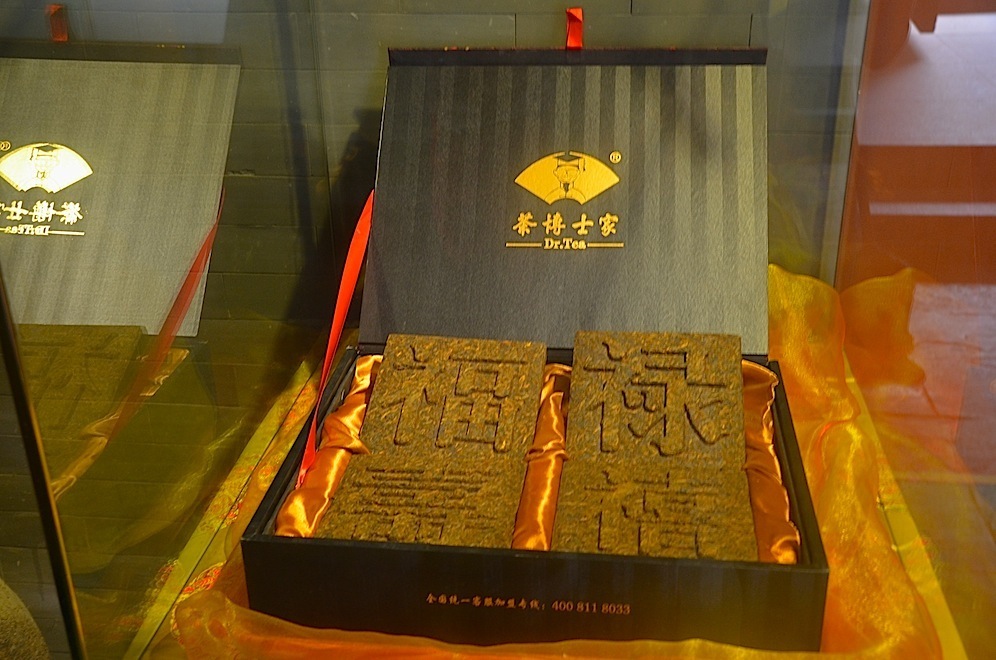 ®
茶博士家
Dr.Tea
福 禄
壽 禧
全国统一客服加盟专线：400 811 8033